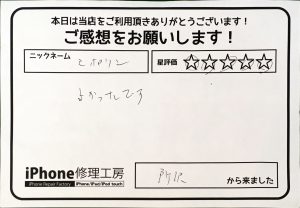 本日は当店をご利用頂きありがとうございます！
ご感想をお願いします！
ニックネーム
星評価 ☆☆☆☆☆
よかったです
iPhone修理工房
iPhone Repair Factory iPhone/iPad/iPod touch
所沢 から来ました